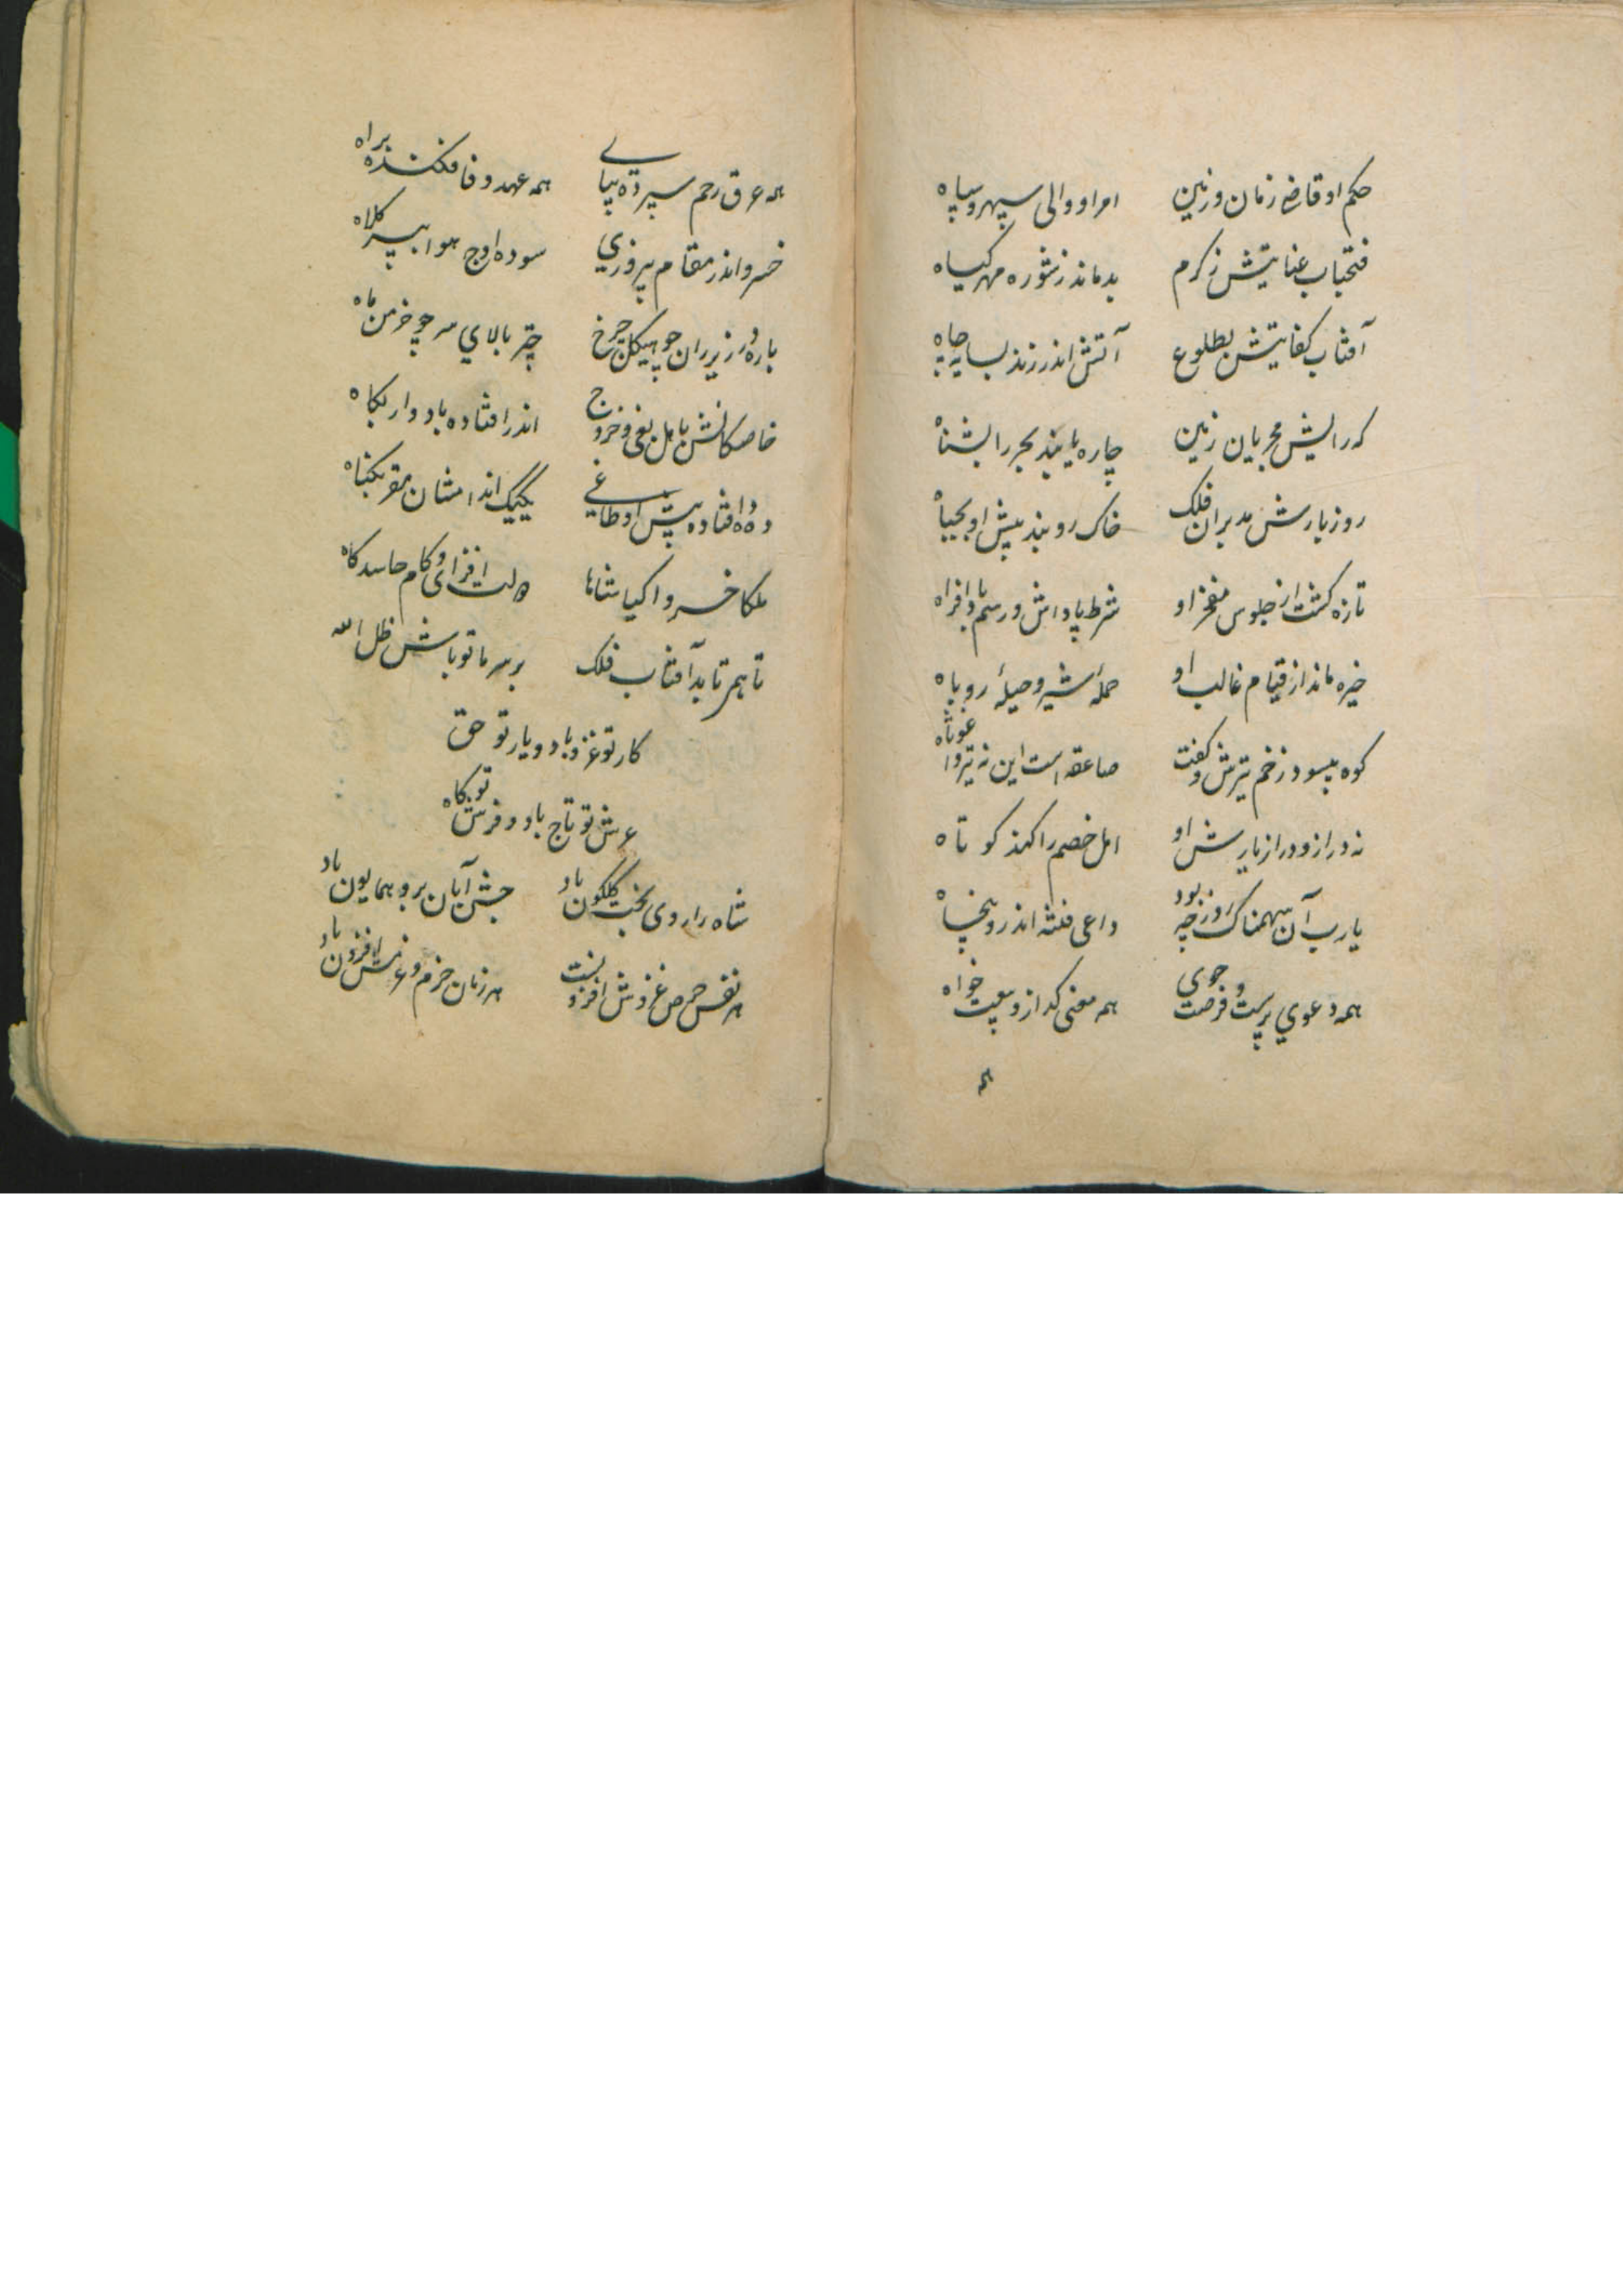 حکم او قاضی زمان و زمین امر او والی سپهر و سپاه
فتحباب عنایتش ز کرم بدماند ز شوره مهر کیاه
آفتاب کفایتش بطلوع آتش اندر زند بسایه چاه
که رایش مجریان زمین چاره یابند بحر را بشناه
روز بارش مدبران فلک خاک روبند پیش او بجباه
تازه کشت از جلوس مفخر او شرط پاداش و رسم بادافراه
خیره ماند از قیام غالب او حملهٔ شیر و حیلهٔ روباه
کوه بپسود زخم تیرش و کفت صاعقه است این نه تیر واغوثاه
نه دراز و دراز یارش او امل خصم را کند کوتاه
یارب آن سهمناک روز چه بود داعی فتنه اندرو پنجاه
همه دعوی پرست و فرصت جوی همه معنی کداز و بیعت خواه
همه
همه عرق رحم سپرده بپای همه عهد وفا فکنده براه
خسرو اندر مقام پیروزی سوده اوج هوا بپر کلاه
باره در زیر ران چو هیکل چرخ چتر بالای سر چو خرمن ماه
خاصکانش باهل بغی و خروج اندر افتاده باد وار بکاه
ده ده افتاده پیش او طاغی یکیک اندامشان مقر بکناه
ملکا خسروا کیا شاها دولت افزای و کام حاسد کاه
تا بمهر تابد آفتاب فلک بر سر ما تو باش ظل الله
کار تو غزو باد و یار تو حق
عرش تو تاج باد و فرش تو کاه
شاه را روی بخت کلکون باد جشن آبان برو همایون باد
هر نفس حرص غزوش افزونست هر زمان خرم و عزمش افزون باد